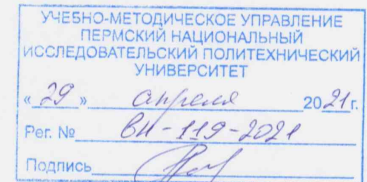 УЧЕБНО-МЕТОДИЧЕСКОЕ УПРАВЛЕНИЕ
ПЕРМСКИЙ НАЦИОНАЛЬНЫЙ
ИССЛЕДОВАТЕЛЬСКИЙ ПОЛИТЕХНИЧЕСКИЙ
УНИВЕРСИТЕТ
« 29 » апреля 2021 г.
Рег. № ВН-119-2021
Подпись